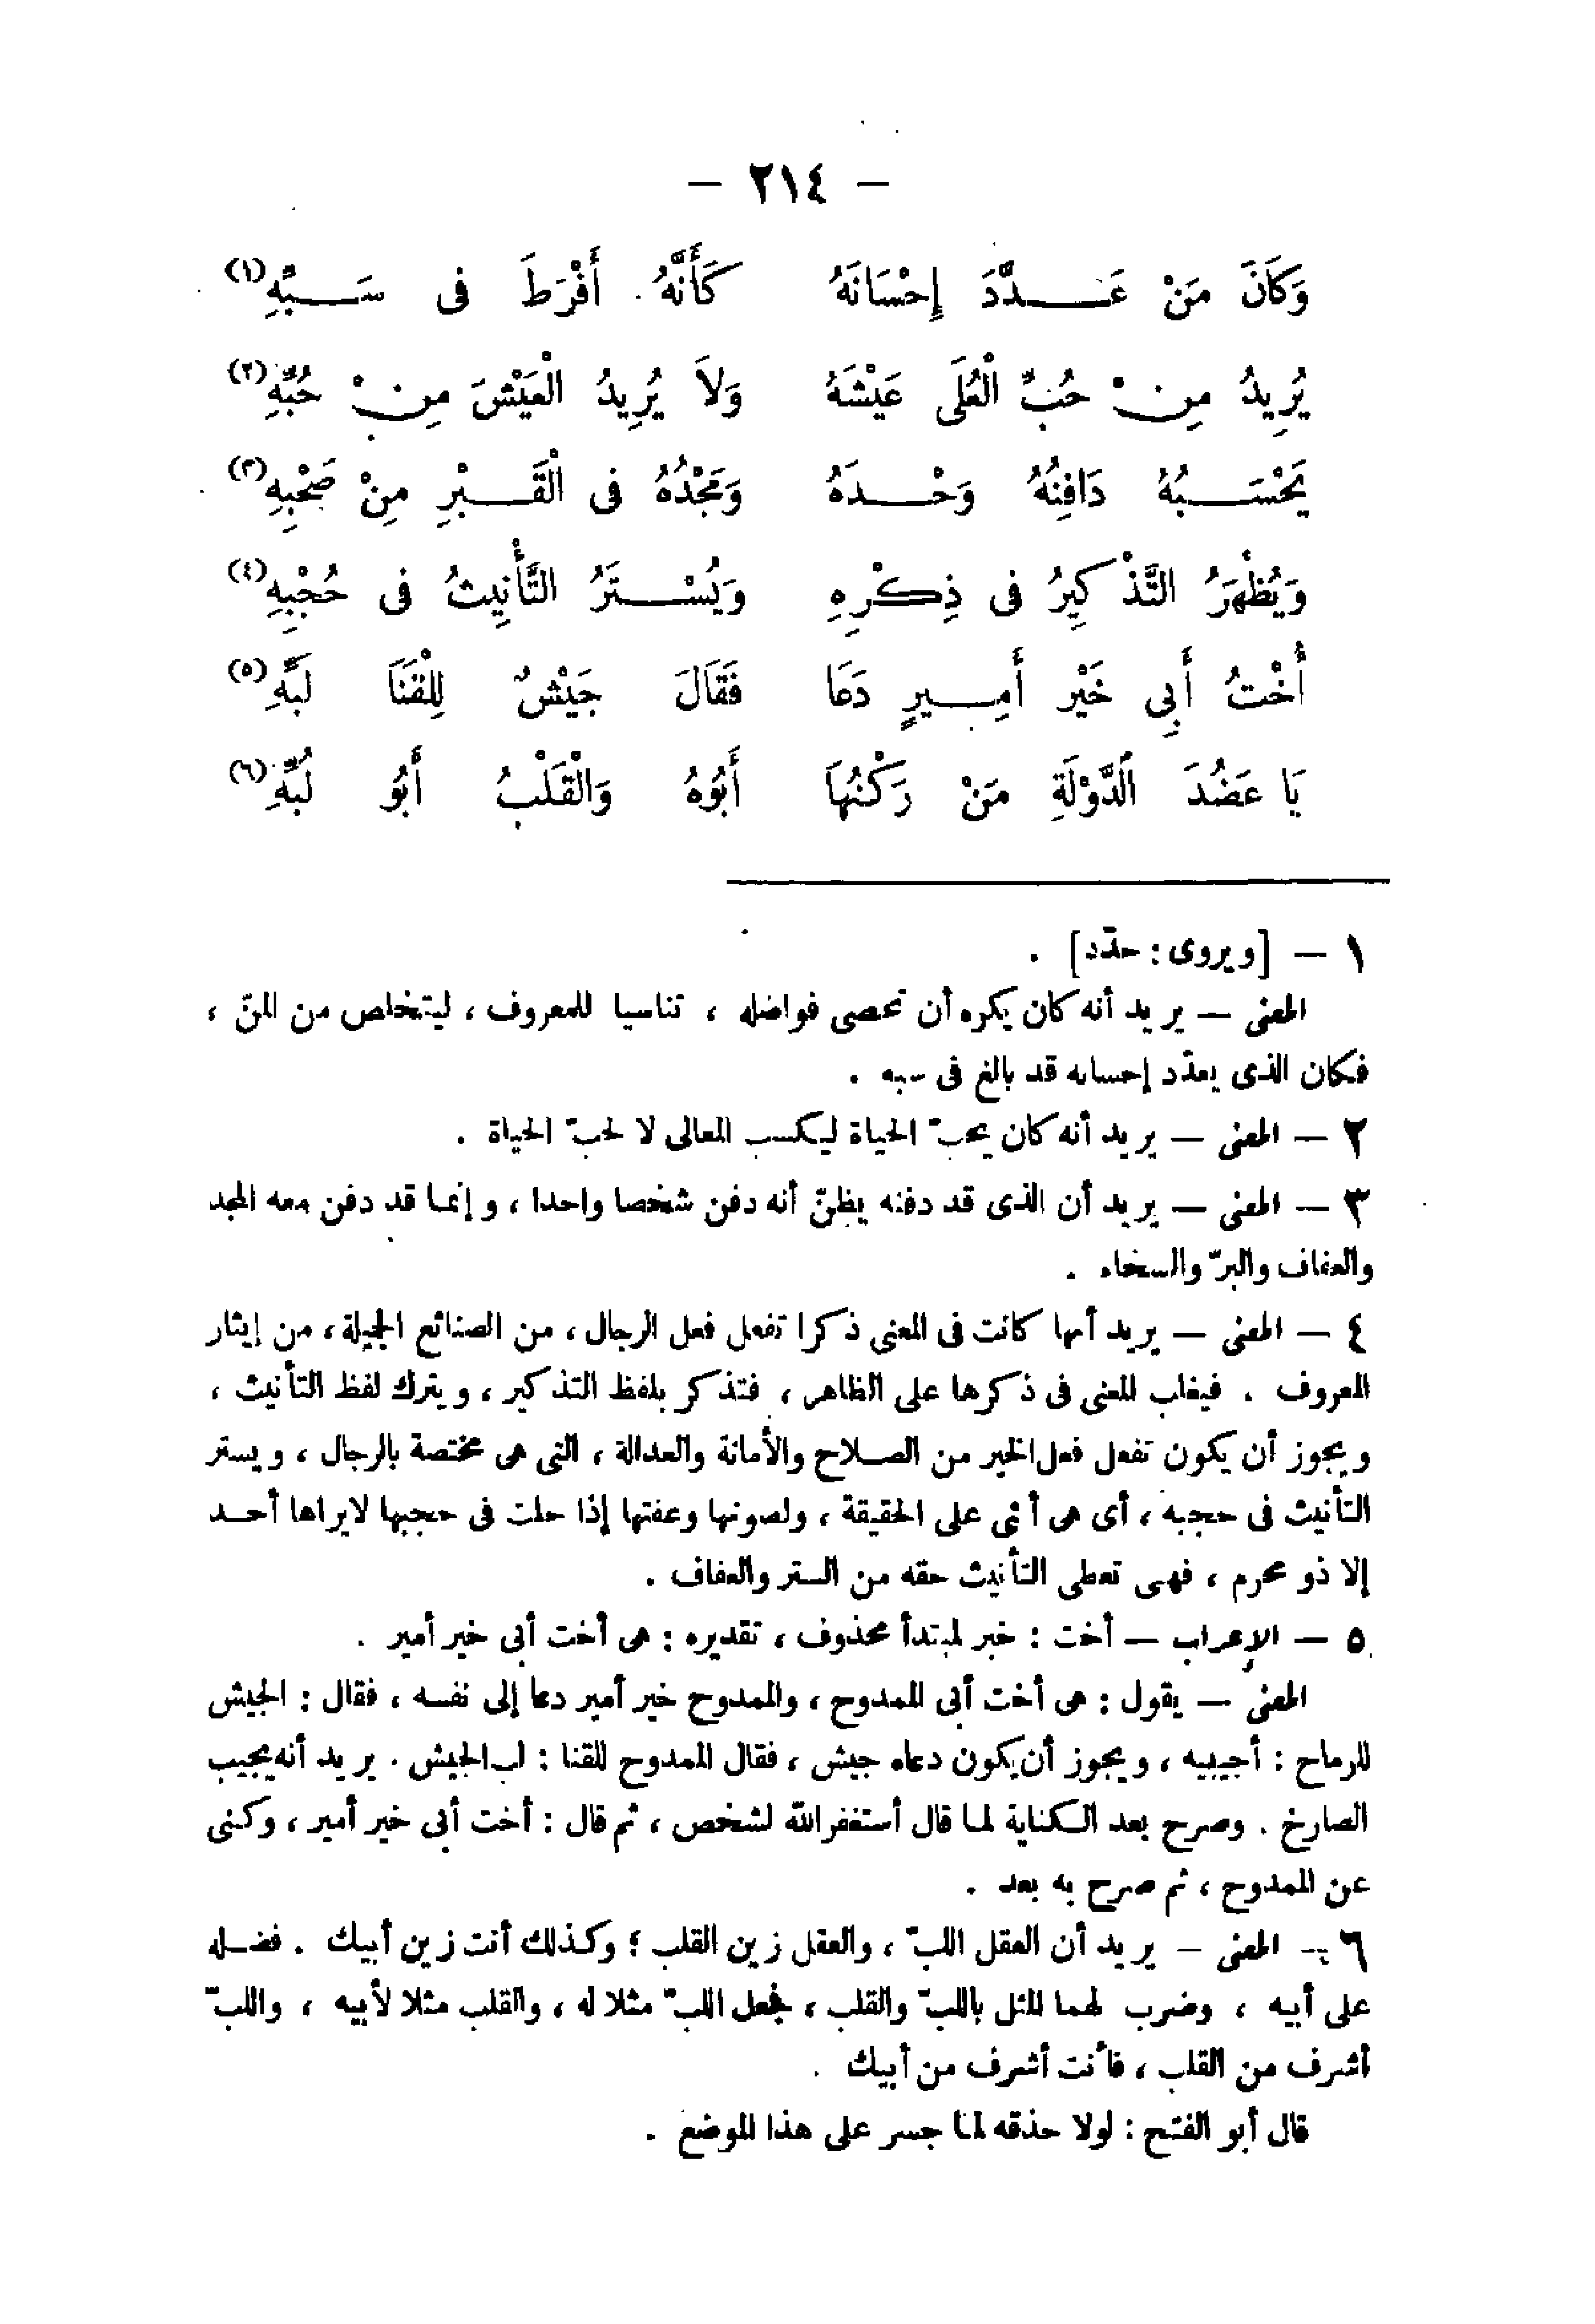 — ٢١٤ —
وَكَانَ مَنْ عَـــدَّدَ إِحْسَانَهُ كَأَنَّهُ أَفْرَطَ فى سَــبِّهِ (١)
يُرِيدُ مِنْ حُبِّ الْعُلَى عَيْشَهُ وَلاَ يُرِيدُ الْعَيْشَ مِنْ حُبِّهِ (٢)
يَحْسَــبُهُ دَافِنُهُ وَحْــدَهُ وَمَجْدُهُ فى الْقَــبْرِ مِنْ صَحْبِهِ (٣)
وَيُظْهَرُ التَّذْكِيرُ فى ذِكْرِهِ وَيُسْــتَرُ التَّأْنِيثُ فى حُجْبِهِ (٤)
أُخْتُ أَبِى خَيْرِ أَمِــيرٍ دَعَا فَقَالَ جَيْشٌ لِلْقَنَا لَبِّهِ (٥)
يَا عَضُدَ الدَّوْلَةِ مَنْ رَكْنُهَا أَبُوهُ وَالْقَلْبُ أَبُو لُبِّهِ (٦)
١ — [ويروى : حدّد] .
المعنى — يريد أنه كان يكره أن تحصى فواضله ، تناسيا للمعروف ، ليتخلص من المنّ ،
فكان الذى يعدّد إحسانه قد بالغ فى سبه .
٢ — المعنى — يريد أنه كان يحبّ الحياة ليكسب المعالى لا لحبّ الحياة .
٣ — المعنى — يريد أن الذى قد دفنه يظنّ أنه دفن شخصا واحدا ، وإنما قد دفن معه المجد
والعفاف والبرّ والسخاء .
٤ — المعنى — يريد أنها كانت فى المعنى ذكرا تفعل فعل الرجال ، من الصنائع الجميلة ، من إيثار
المعروف . فيغلب المعنى فى ذكرها على الظاهر ، فتذكر بلفظ التذكير ، ويترك لفظ التأنيث ،
ويجوز أن يكون تفعل فعل الخير من الصــلاح والأمانة والعدالة ، التى هى مختصة بالرجال ، ويستر
التأنيث فى حجبه ، أى هى أنثى على الحقيقة ، ولصونها وعفتها إذا حلت فى حجبها لايراها أحــد
إلا ذو محرم ، فهى تعطى التأنيث حقه من الستر والعفاف .
٥ — الإعراب — أخت : خبر لمبتدأ محذوف ، تقديره : هى أخت أبى خير أمير .
المعنى — يقول : هى أخت أبى الممدوح ، والممدوح خير أمير دعا إلى نفسه ، فقال : الجيش
للرماح : أجيبيه ، ويجوز أن يكون دعاه جيش ، فقال الممدوح للقنا : لب الجيش . يريد أنه يجيب
الصارخ . وصرح بعد الكناية لما قال أستغفر الله لشخص ، ثم قال : أخت أبى خير أمير ، وكنى
عن الممدوح ، ثم صرح به بعد .
٦ — المعنى — يريد أن العقل اللبّ ، والعقل زين القلب ؛ وكذلك أنت زين أبيك . فضــله
على أبيه ، وضرب لهما المثل باللبّ والقلب ، فجعل اللبّ مثلا له ، والقلب مثلا لأبيه ، واللبّ
أشرف من القلب ، فأنت أشرف من أبيك .
قال أبو الفتح : لولا حذقه لما جسر على هذا الموضع .